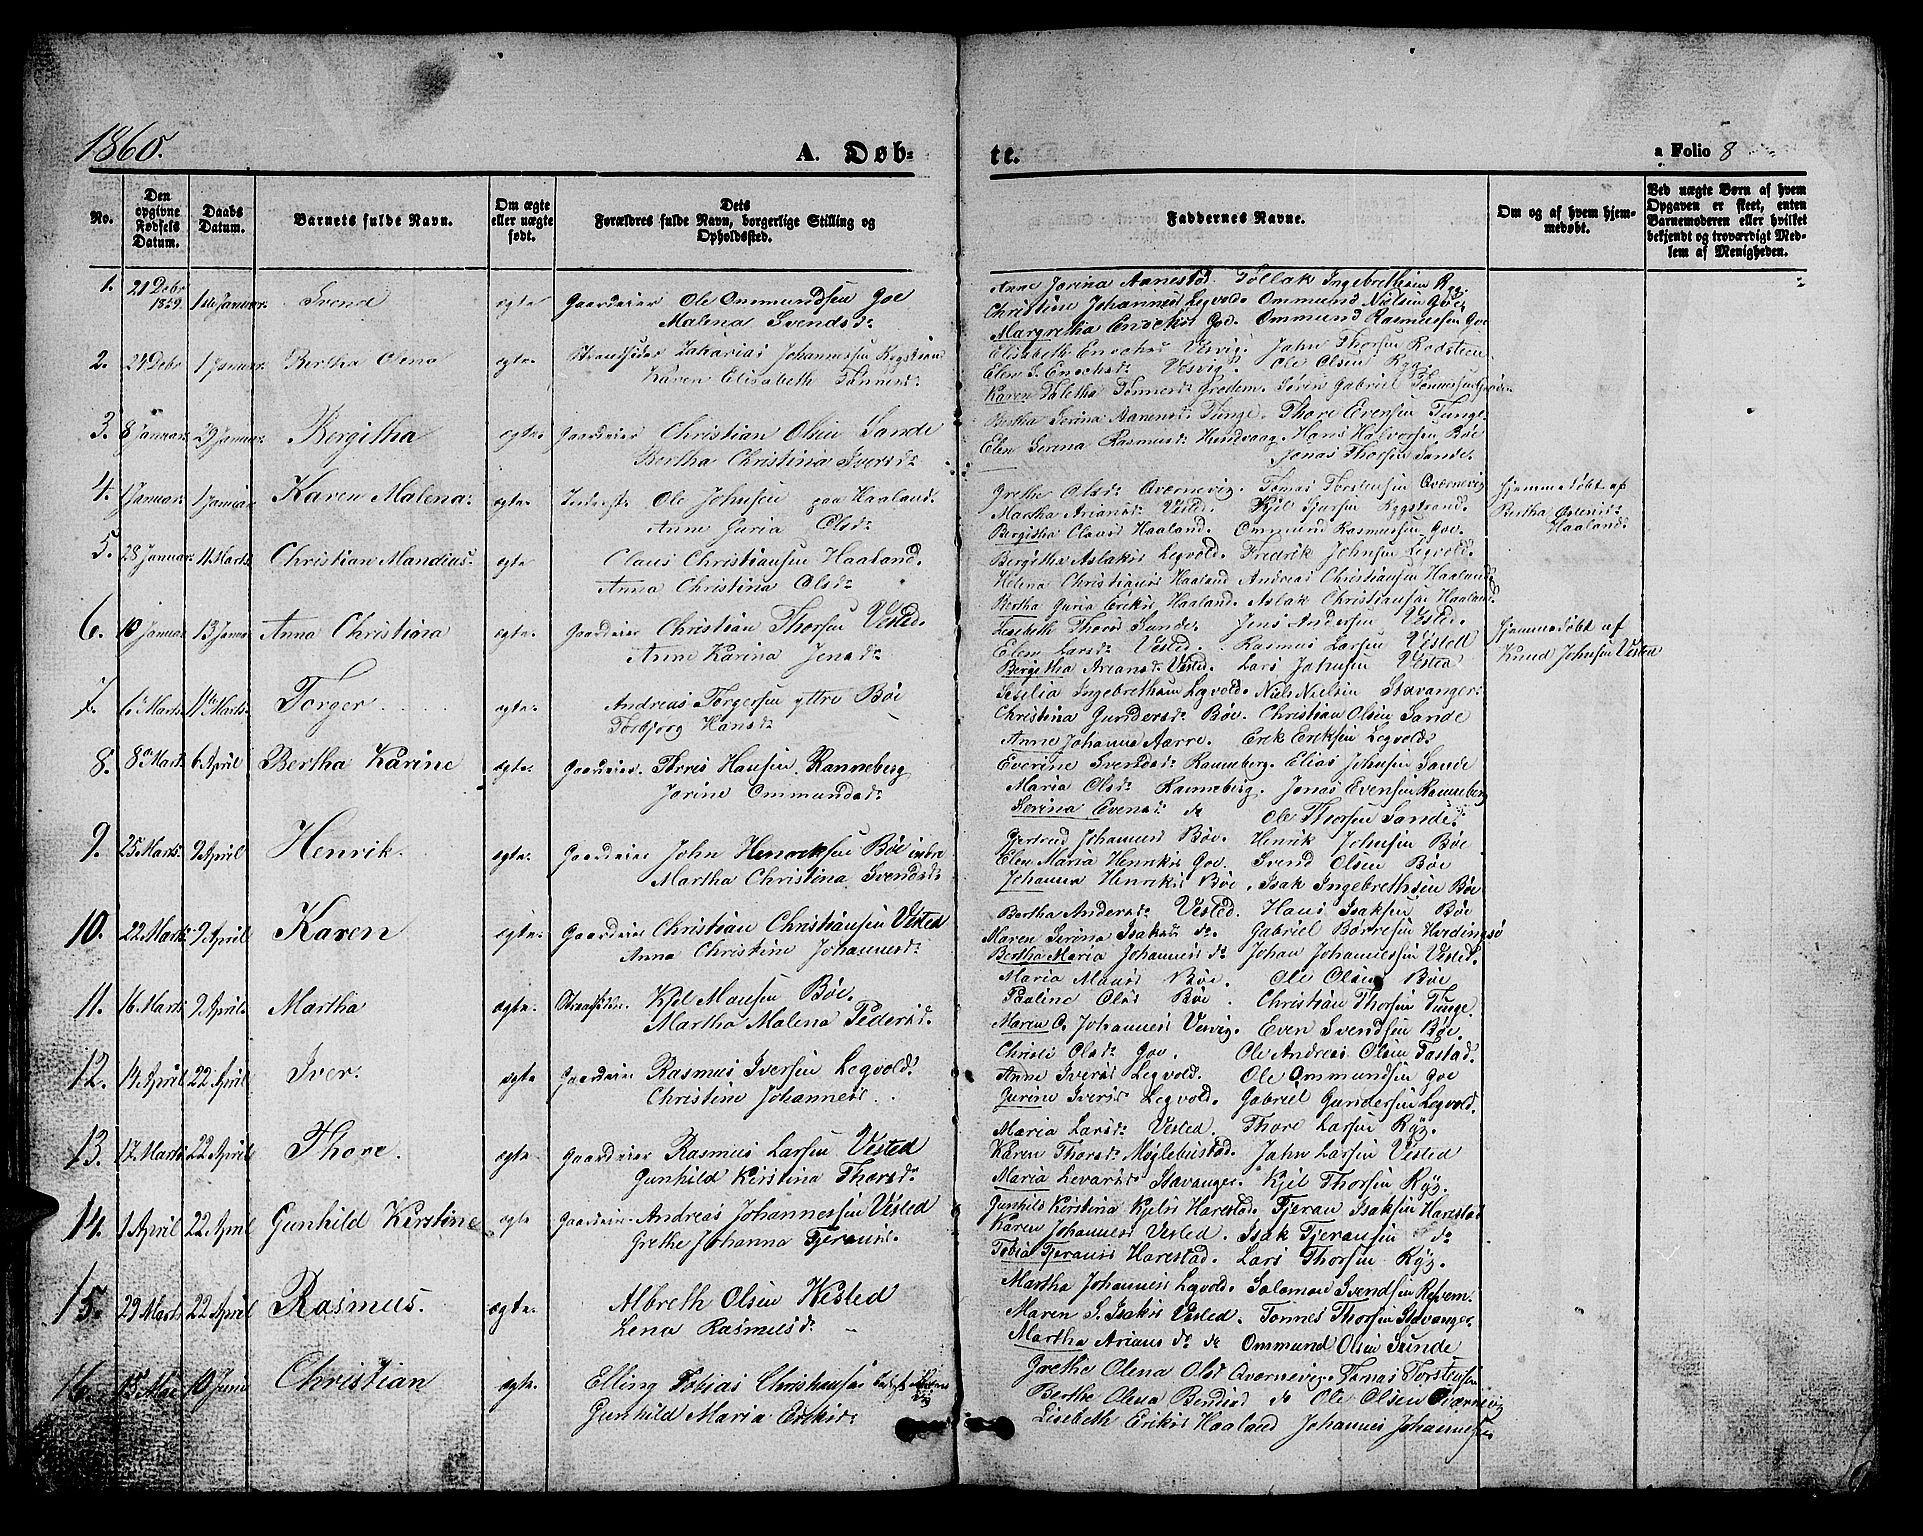 1860.
A. Døb-
te.
a Folio 8
No.
Den opgivne Fødsels Datum.
Daabs Datum.
Barnets fulde Navn.
Om ægte eller uægte født.
Dets Forældres fulde Navn, borgerlige Stilling og Opholdssted.
Faddernes Navne.
Om og af hvem hjemmedøbt.
Ved uægte Børn af hvem Opgaven er skeet, enten Barnemoderen eller hvilket bekjendt og troværdigt Medlem af Menigheden.
1. 21 Debr 1859. 1ste Januar. Svend ægte Gaardeier Ole Ommundsen Goe
Malena Svendsdr
Anne Jorina Aanestad. Tollak Ingebrethsen Ryg.
Christine Johannesd Legvold. Ommund Nielsen Goe.
Margretha Enochsd Goe. Ommund Rasmussen Goe
2. 24 Debr 1 Januar. Bertha Olena ægte. Strandsider Zakarias Johannessen Rygstrand
Karen Elisabeth Tønnesdr
Elisabeth Enochsd Vesvig. John Thorsen Rodsteen.
Elen S. Enochsdr Vesvig. Ole Olsen Ryg.
Karen Taletha Tønnesdr Grødem. Søren Gabriel Tønnessen Grødem
3. 8 Januar. 29 Januar. Bergitha ægte. Gaardeier Christian Olsen Sande
Bertha Christina Iversdr
Bertha Serina Aanensdr Tunge. Thore Evensen Tunge.
Elen Serena Rasmusdr Hundvaag. Hans Halvorsen Bøe
Jonas Thorsen Sande.
4. 1 Januar. 1 Januar. Karen Malena. ægte Inderst. Ole Johnsen paa Haaland.
Anne Guria Olsdr
Grethe Olsdr Qværnevig. Tomas Torstensen Qværnevig
Martha Ariansdr Vested. Kjel Sjursen Rygstrand.
Bergitha Clausd Haaland. Ommund Rasmussen Goe.
Hjemmedøbt af
Bertha Østensdr
Haaland.
5. 28 Januar. 11 Marts. Christian Mandius. ægte Claus Christiansen Haaland.
Anna Christina Olsdr
Bergitha Aslaksd Legvold. Fredrik Johnsen Legvold.
Helena Christiansd Haaland Andreas Christiansen Haaland.
Bertha Guria Eriksd Haaland. Aslak Christiansen Haaland.
6. 10 Januar 13 Janr Anna Christina ægte. Gaardeier Christian Thorsen Vested.
Anne Karina Jensdr
Lisebeth Thorsd Sunde. Jens Andersen Vested.
Elen Larsdr Vested. Rasmus Larsen Vested
Bergitha Ariansdr Vested. Lars Johnsen Vested
Hjemmedøbt af
Knud Johnsen Vested
7. 6 Marts. 11 Marts. Torger ægte. Andreas Torgersen yttre Bøe
Torbjorg Hansdr
Sesilia Ingebrethsen Legvold. Niels Nielsen Stavanger.
Christina Gundersdr Bøe. Christian Olsen Sande
Anne Johanna Aarre. Erik Eriksen Legvold.
8. 8 Marts 6 April Bertha Karine ægte. Gaardeier. Torres Hansen Ranneberg
Jorine Ommundsdr
Everine Svensdr Ranneberg. Elias Johnsen Sande
Maria Olsdr Ranneberg. Jonas Evensen Ranneberg
Serina Evensdr do Ole Thorsen Sande.
9. 25 Marts. 9 April Henrik. ægte. Gaardeier John Henriksen Bøe indre
Martha Christina Svendsdr
Gjertrud Johannesd Bøe. Henrik Johnsen Bøe
Elen Maria Henriksd Goe. Svend Olsen Bøe
Johanna Henriksd Bøe. Isak Ingebrethsen Bøe
10. 22 Marts. 9 April Karen ægte. Gaardeier Christian Christiansen Vested
Anna Christine Johannesdr
Bertha Andersdr Vested. Hans Isaksen Bøe
Maren Serina Isaksd do. Gabriel Børresen Hvidingsø
Bertha Maria Johannesd do Johan Johannessen Vested.
11. 16 Marts 9 April. Martha ægte. Strandsidder. Kjel Mansen Bøe.
Martha Malena Pedersdr
Maria Mansd Bøe Ole Olsen Bøe
Pauline Olsd Bøe. Christian Thorsen Tunge.
Maren O. Johannesd Vesvig. Even Svendsen Bøe.
12. 14 April 22 April Iver. ægte Gaardeier Rasmus Iversen Legvold
Christine Johannesd.
Christi Olsdr Goe. Ole Andreas Olsen Tastad.
Anne Iversd Legvold. Ole Ommundsen Goe
Gurine Iversd Legvold. Gabriel Gundersen Legvold.
13. 17 Marts 22 April Thore. ægte Gaardeier Rasmus Larsen Vested
Gunhild Kirstina Thorsdr
Maria Larsdr Vested. Thore Larsen Ryg.
Karen Thorsdr Møglebustad. John Larsen Vested
Maria Levardsd Stavanger. Kjel Thorsen Ryg.
14. 1 April 22 April Gunhild Kirstine ægte Gaardeier. Andreas Johannessen Vested
Grethe Johanna Tjeransd.
Gunhild Kirstina Kjelsd Harestad. Tjeran Isaksen Harestad
Karen Johannesd Vested. Isak Tjeransen do
Tobia Tjeransd Harestad. Lars Thorsen Ryg.
15. 29 Marts 22 April Rasmus. ægte. Albreth Olsen Vested
Lena Rasmusdr
Martha Johannesd Legvold. Salomon Svendsen Revem.
Maren S. Isaksd Vested. Tønnes Thorsen Stavanger.
Martha Ariansdr do Ommund Olsen Sunde
16. 15 Mai 10 Juni Christian ægte. Elling Tobias Christiansen
Gunhild Maria Eriksdr
Grethe Olena Olsd Qværnevig. Tomas Torstensen
Berthe Olena Bendtsd do Ole Olsen Qværnevig
Lisebeth Eriksd Haaland Johannes Johannessen